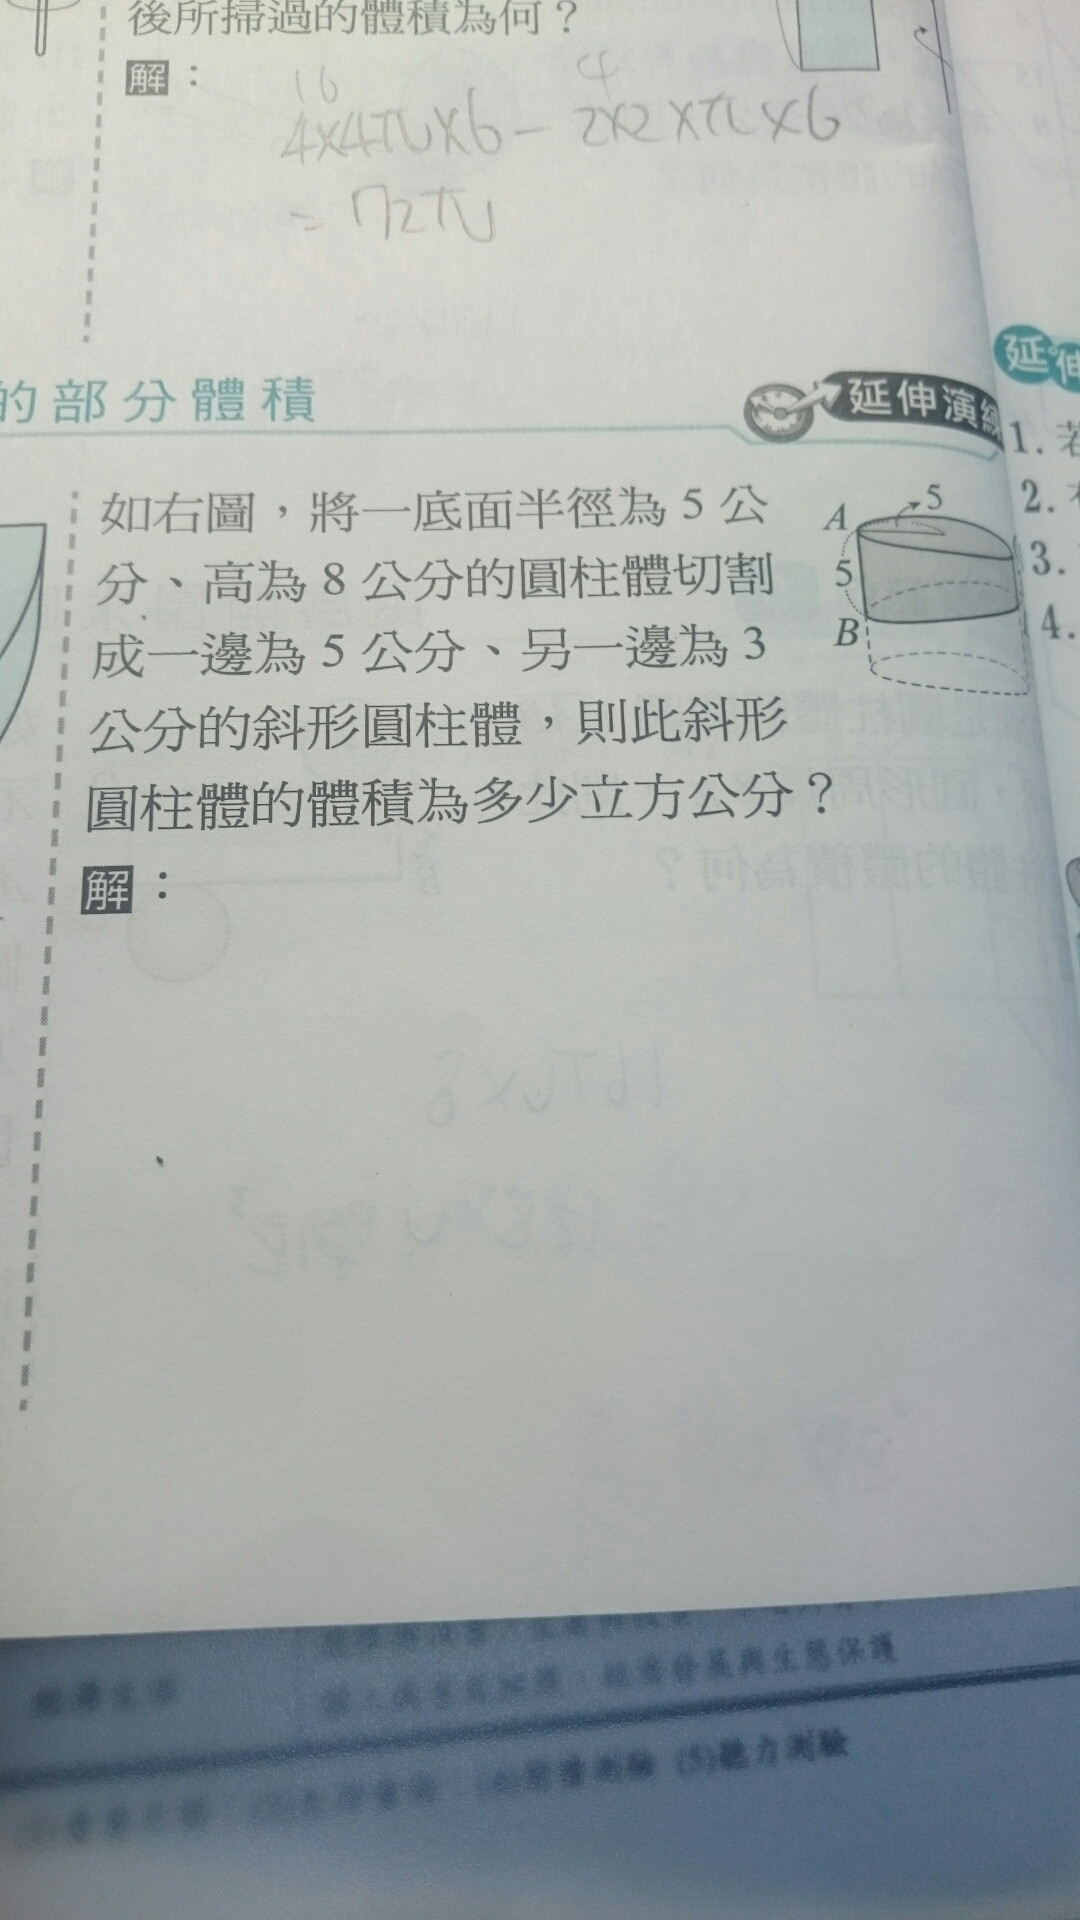 後所掃過的體積為何？
解：
16 4
4×4π×6－2×2×π×6
=72π
的部分體積
延伸演練
延伸
如右圖，將一底面半徑為5公
分、高為8公分的圓柱體切割
成一邊為5公分、另一邊為3
公分的斜形圓柱體，則此斜形
圓柱體的體積為多少立方公分？
A
5
5
B
解：
1.
2.
3.
4.
(5)聽力測驗